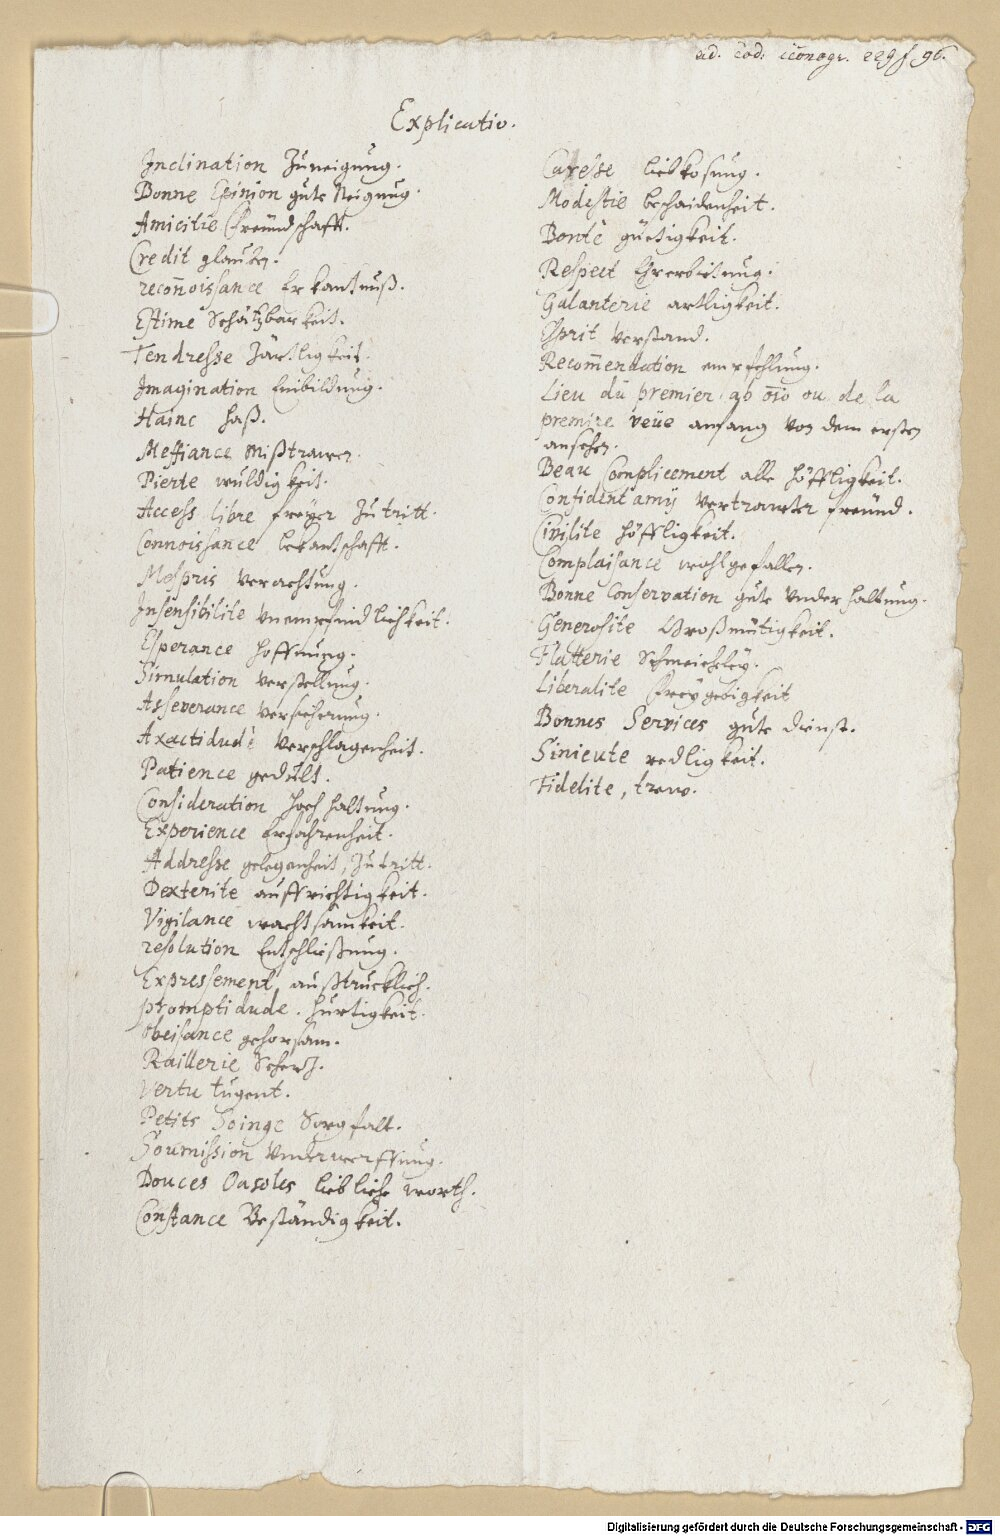 ad. cod: iconogr. 229 f 96.
Explicatio.
Inclination Zuneigung.
Bonne Opinion gute Neigung.
Amicitie Freündschafft.
Credit glauben.
reconnoissance Erkantnuß.
Estime Schätzbarkeit.
Tendresse Zärtligkeit.
Imagination Einbildung.
Haine haß.
Meffiance Mißtrawen.
Pierte mildigkeit.
Access libre freÿer Zutritt.
Connoissance bekantschafft.
Mespris Verachtung.
Insensibilite Vnempfindlichkeit.
Esperance hoffnung.
Simulation Verstellung.
Asseverance Versicherung.
Axactidude Verschlagenheit.
Patience gedult.
Consideration hochhaltung.
Experience Erfahrenheit.
Addresse gelegenheit, Zutritt.
Dexterite auffrichtigkeit.
Vigilance wachtsamkeit.
resolution Entschließung.
Expressement außtrucklich.
promptidude. hurtigkeit.
Obeisance gehorsam.
Raillerie Schertz.
Vertu tugent.
Petits Soings Sorgfalt.
Soumission Vnderwerffung.
Douces Paroles liebliche worth.
Constance Beständigkeit.
Caresse liebkosung.
Modestie bescheidenheit.
Bonte gütigkeit.
Respect Ehrerbietung.
Galanterie artligkeit.
Esprit Verstand.
Recommendation empfehlung.
Lieu du premier ou de la
premire veüe anfang von dem ersten
ansehen.
Beau Complicement alle höffligkeit.
Confident amÿ Vertrawter freünd.
Civilite höffligkeit.
Complaisance wohlgefallen.
Bonne Conservation gute Vnderhaltung.
Generosite Großmütigkeit.
Flatterie Schmeicheleÿ.
Liberalite Freÿgebigkeit
Bonnes Services gute dienst.
Sinicute redligkeit.
Fidelite, trew.
Digitalisierung gefördert durch die Deutsche Forschungsgemeinschaft - DFG